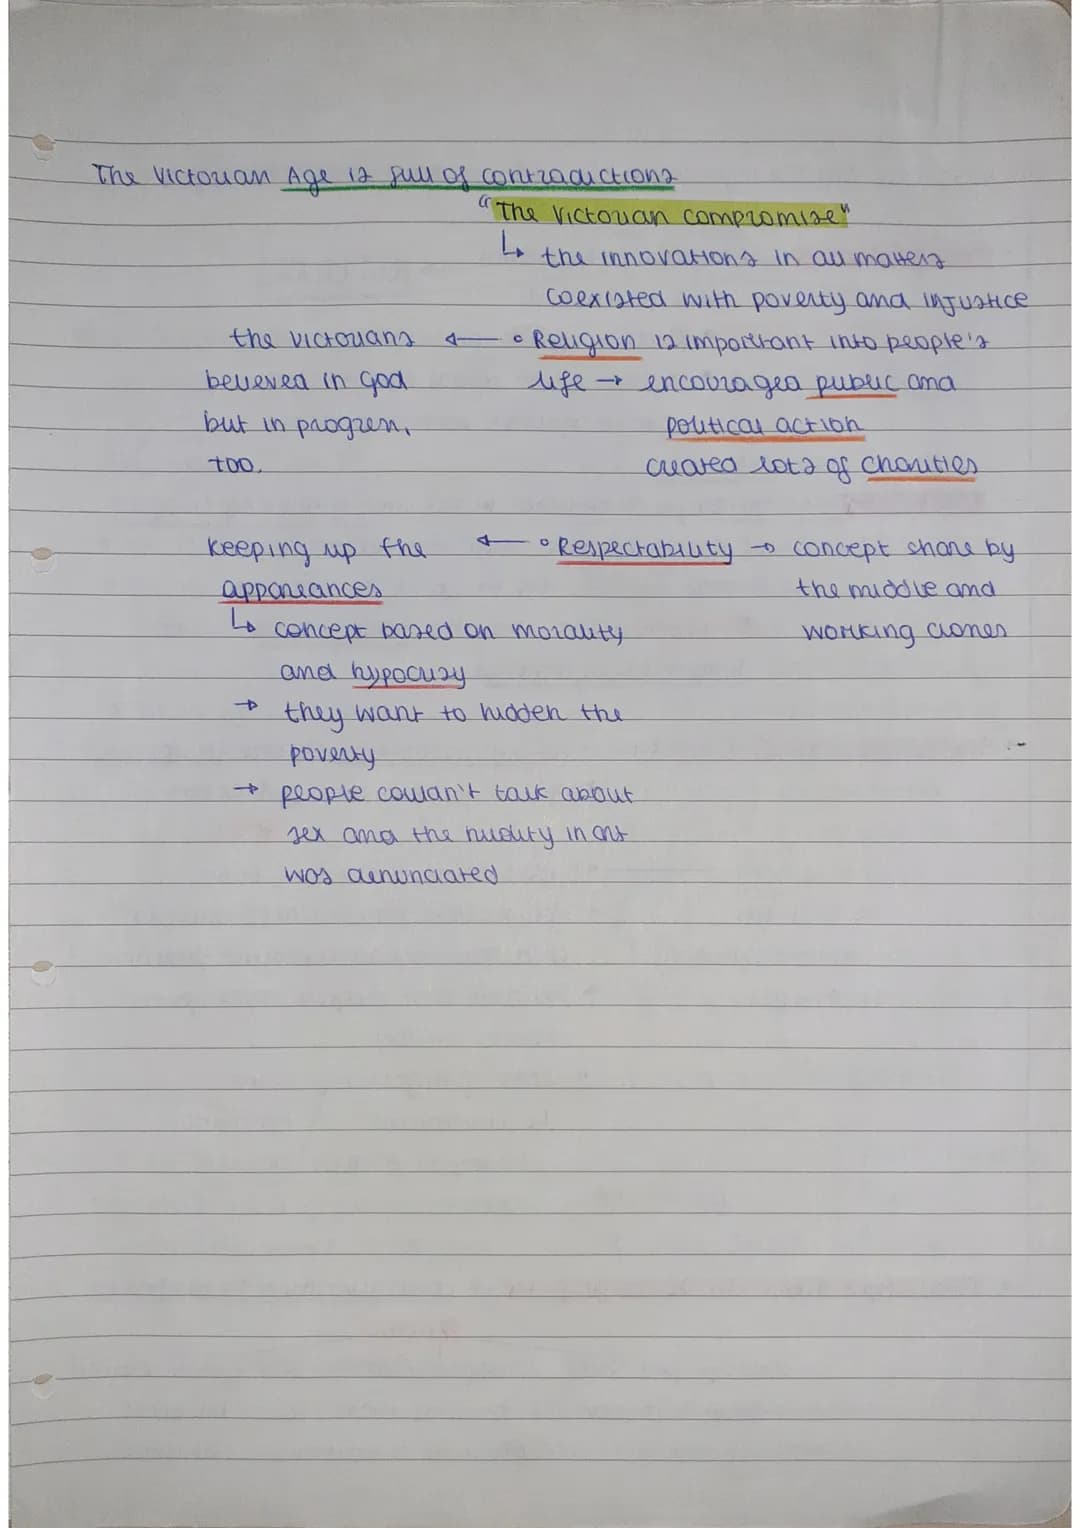 The Victorian Age is full of contradictions
"The Victorian compromise"
↳ the innovations in all matters
coexisted with poverty and injustice
the victorians ← ∘ Religion is important into people's
believed in god life → encouraged public and
but in progress, political action
too. created lots of charities
keeping up the ← ∘ Respectability → concept share by
appareances the middle and
↳ concept based on morality working classes
and hypocrisy
→ they want to hidden the
poverty
→ people couldn't talk about
sex and the nudity in art
was denunciated